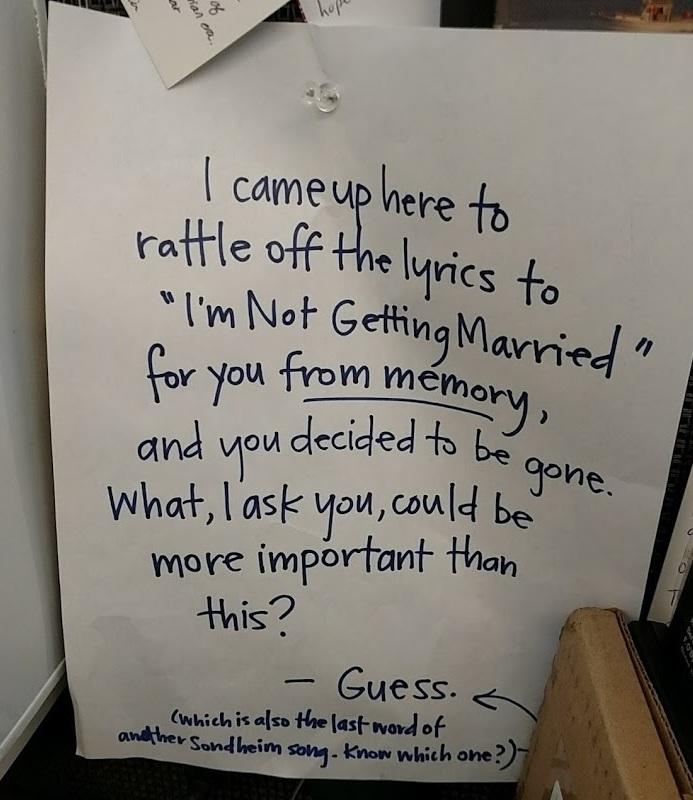 of
ian era.
ar
hope
I came up here to
rattle off the lyrics to
"I'm Not Getting Married"
for you from memory,
and you decided to be gone.
What, I ask you, could be
more important than
this?
— Guess.
(which is also the last word of
another Sondheim song. Know which one?)